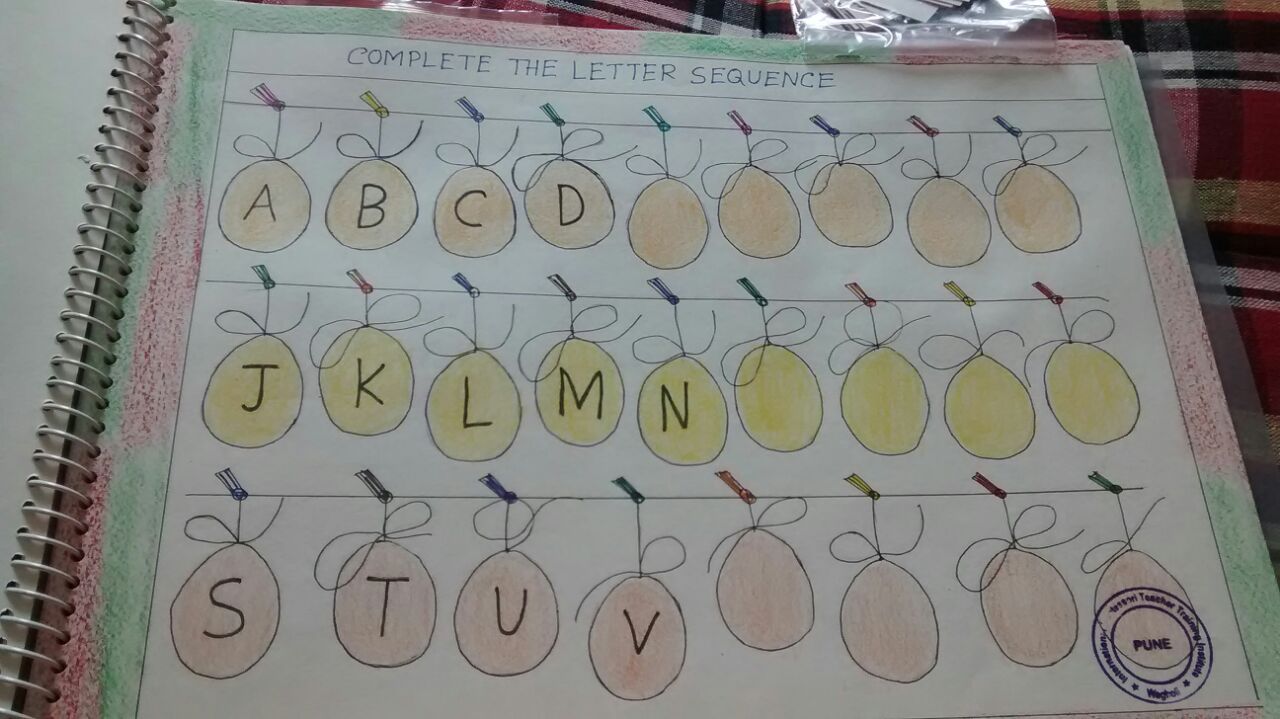 COMPLETE THE LETTER SEQUENCE
A B C D
J K L M N
S T U V
Teacher Training Institute
PUNE
Wagholi